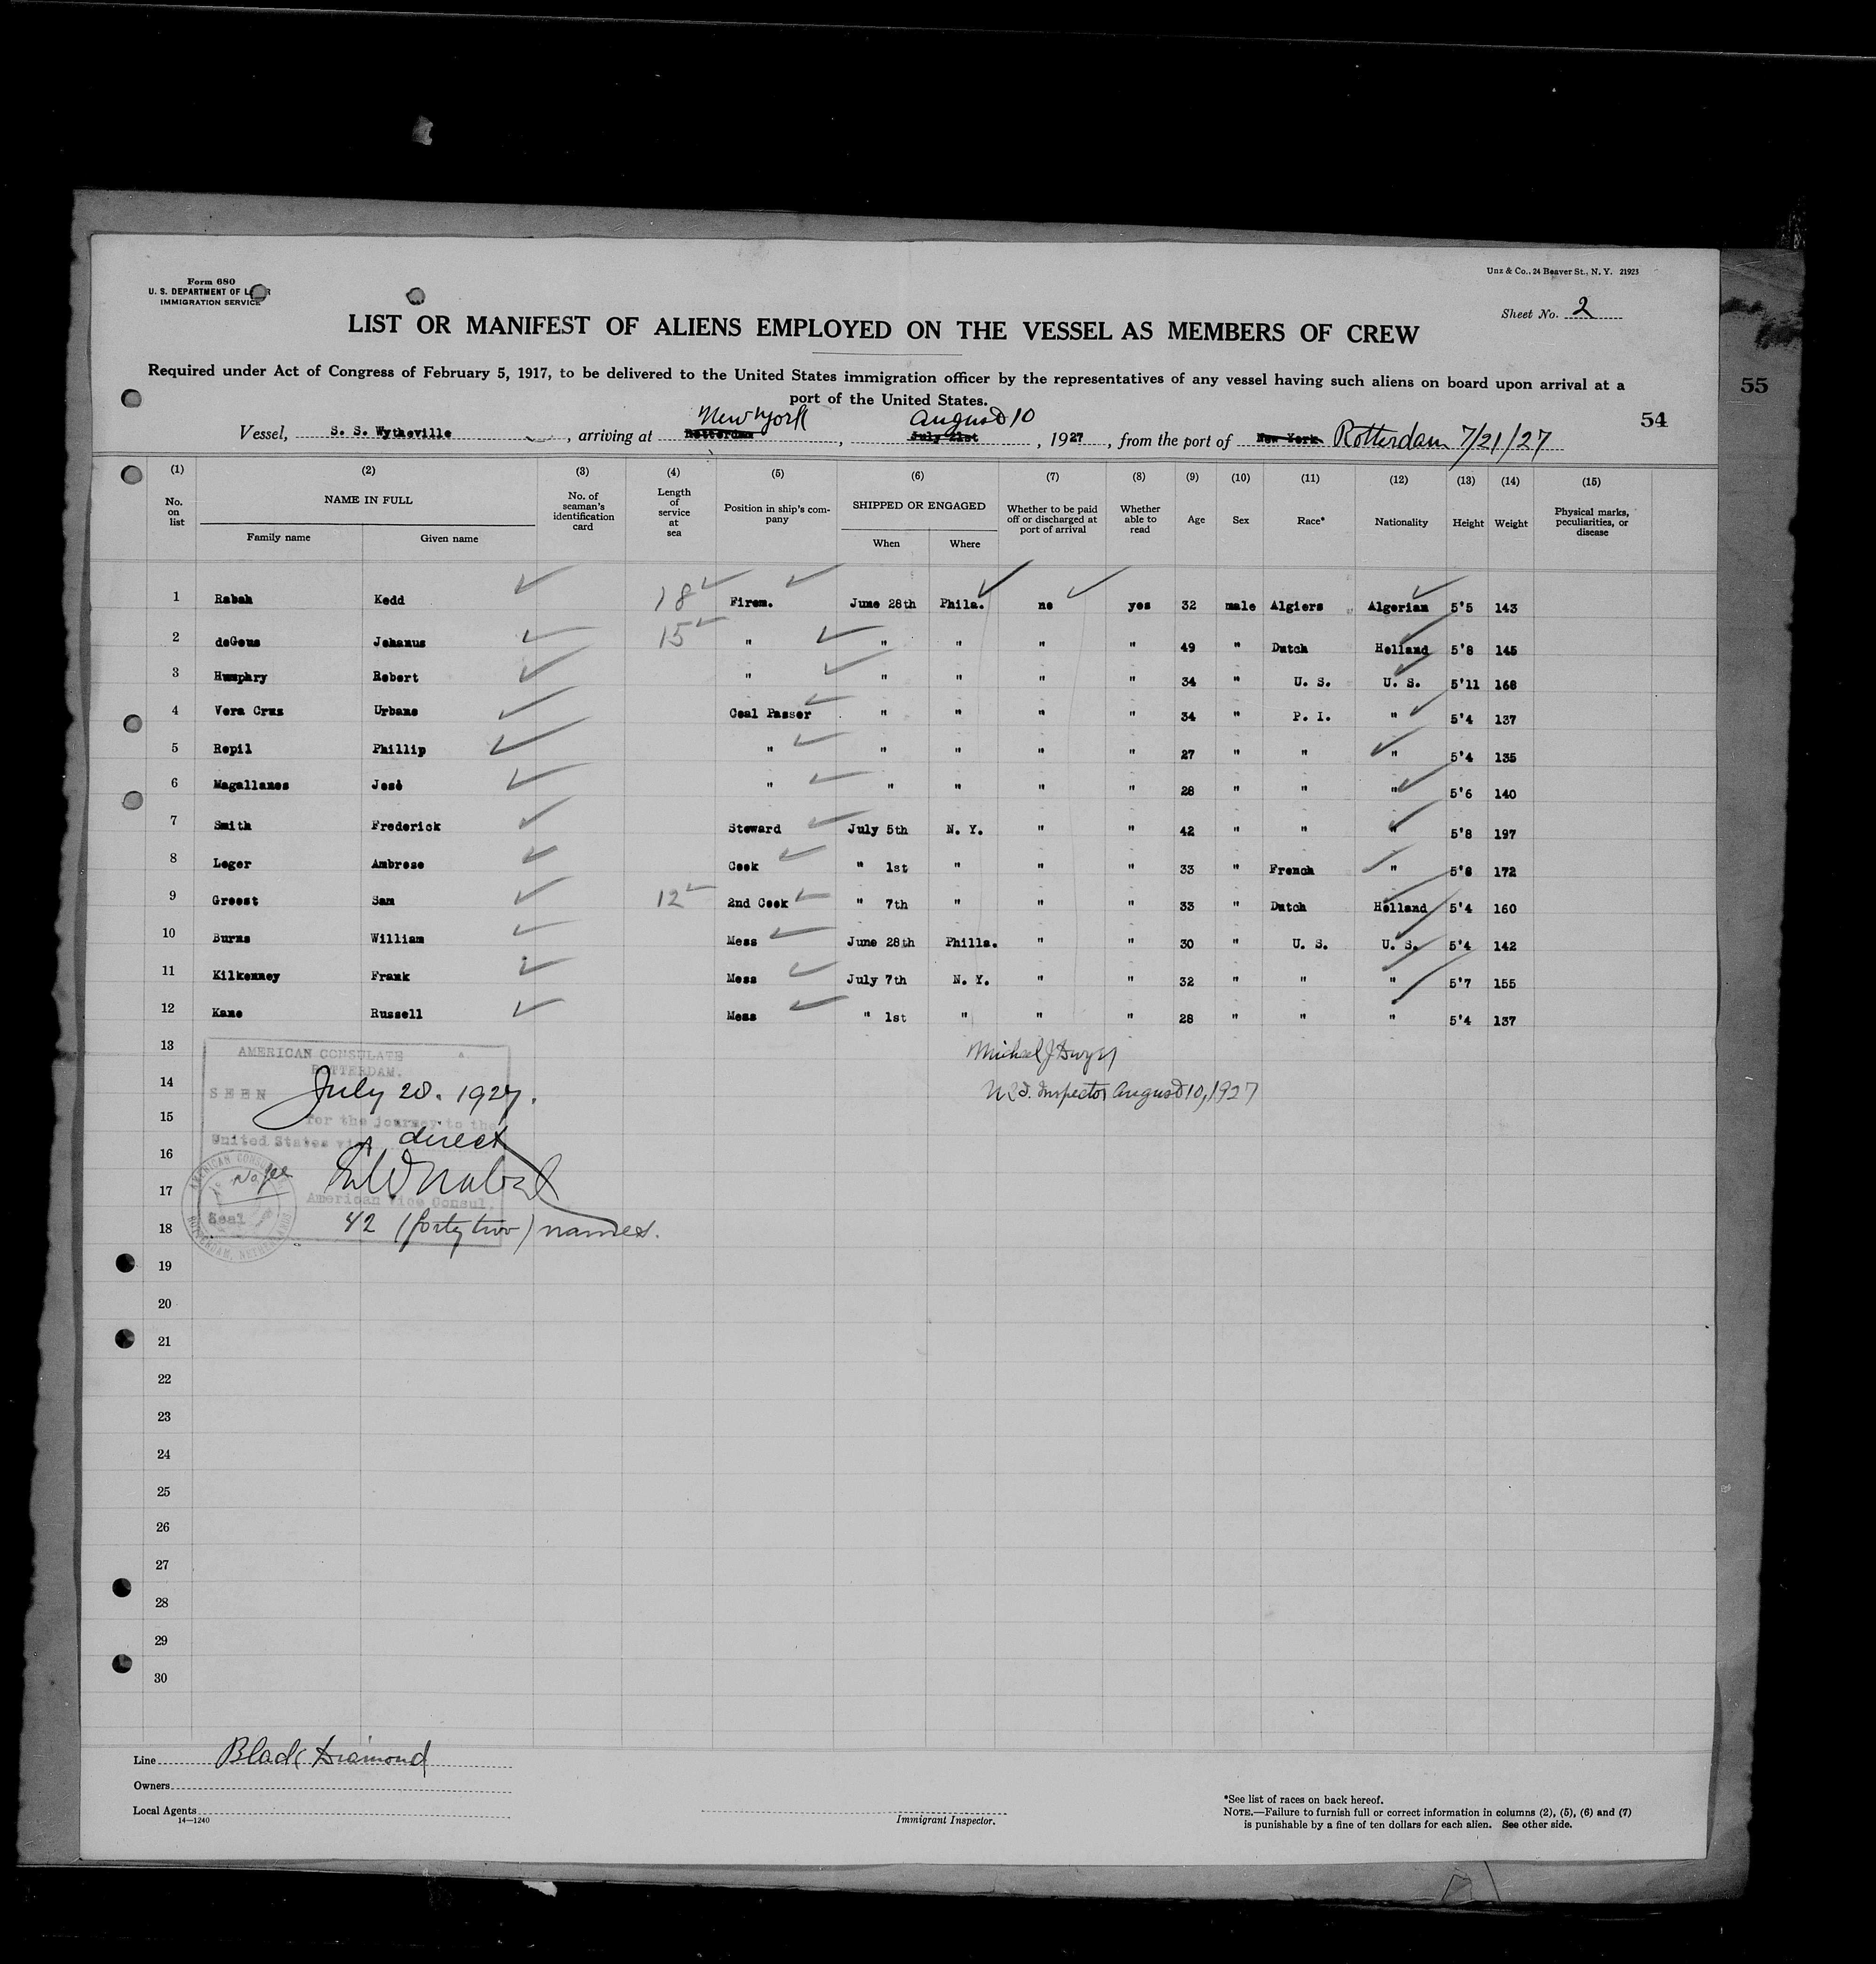 Form 680
U. S. DEPARTMENT OF L R
IMMIGRATION SERVICE
Unz & Co., 24 Beaver St., N. Y. 21923
Sheet No. 2
LIST OR MANIFEST OF ALIENS EMPLOYED ON THE VESSEL AS MEMBERS OF CREW
Required under Act of Congress of February 5, 1917, to be delivered to the United States immigration officer by the representatives of any vessel having such aliens on board upon arrival at a
port of the United States.
55
54
New York August 10
Vessel, S. S. Wytheville, arriving at Rotterdam, July 21st, 1927, from the port of New York Rotterdam 7/21/27
(1) (2) (3) (4) (5) (6) (7) (8) (9) (10) (11) (12) (13) (14) (15)
No. on list NAME IN FULL Family name Given name No. of seaman's identification card Length of service at sea Position in ship's company SHIPPED OR ENGAGED When Where Whether to be paid off or discharged at port of arrival Whether able to read Age Sex Race* Nationality Height Weight Physical marks, peculiarities, or disease
1 Rabah Kedd 18 Firem. June 28th Phila. no yes 32 male Algiers Algerian 5'5 143
2 deGeus Johanus 15 " " " " " 49 " Dutch Holland 5'8 145
3 Humphry Robert " " " " " 34 " U. S. U. S. 5'11 168
4 Vera Cruz Urbano Coal Passer " " " " 34 " P. I. " 5'4 137
5 Repil Phillip " " " " " 27 " " " 5'4 135
6 Magallanes José " " " " " 28 " " " 5'6 140
7 Smith Frederick Steward July 5th N. Y. " " 42 " " " 5'8 197
8 Leger Ambrose Cook " 1st " " " 33 " French " 5'8 172
9 Groost Sam 12 2nd Cook " 7th " " " 33 " Dutch Holland 5'4 160
10 Burns William Mess June 28th Philla. " " 30 " U. S. U. S. 5'4 142
11 Kilkenney Frank Mess July 7th N. Y. " " 32 " " " 5'7 155
12 Kane Russell Mess " 1st " " " 28 " " " 5'4 137
13
14
15
16
17
18
19
20
21
22
23
24
25
26
27
28
29
30
AMERICAN CONSULATE
ROTTERDAM.
SEEN July 20. 1927.
for the journey to the
United States via direct
No fee
American Vice Consul.
Seal
AMERICAN CONSULATE ROTTERDAM, NETHERLANDS
42 (forty two) names.
Michael J Dwyer
Inspector August 10, 1927
Line Black Diamond
Owners
Local Agents
14—1240
Immigrant Inspector.
*See list of races on back hereof.
NOTE.—Failure to furnish full or correct information in columns (2), (5), (6) and (7)
is punishable by a fine of ten dollars for each alien. See other side.